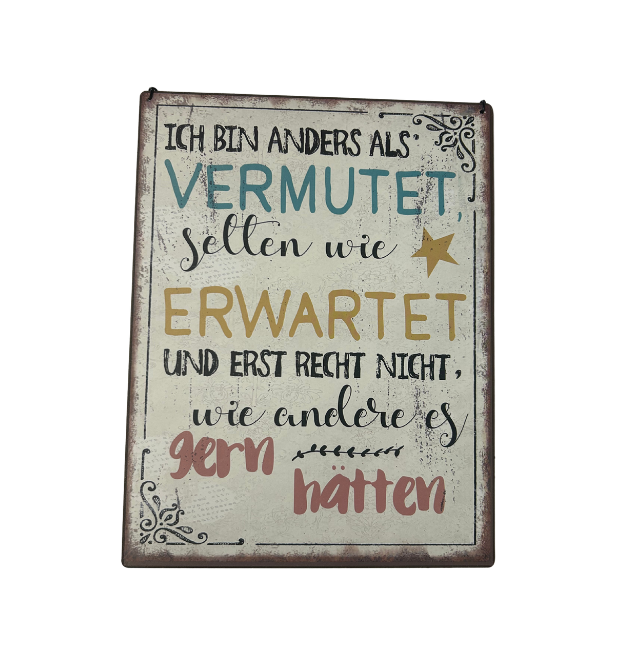 ICH BIN ANDERS ALS
VERMUTET,
selten wie
ERWARTET
UND ERST RECHT NICHT,
wie andere es
gern
hätten